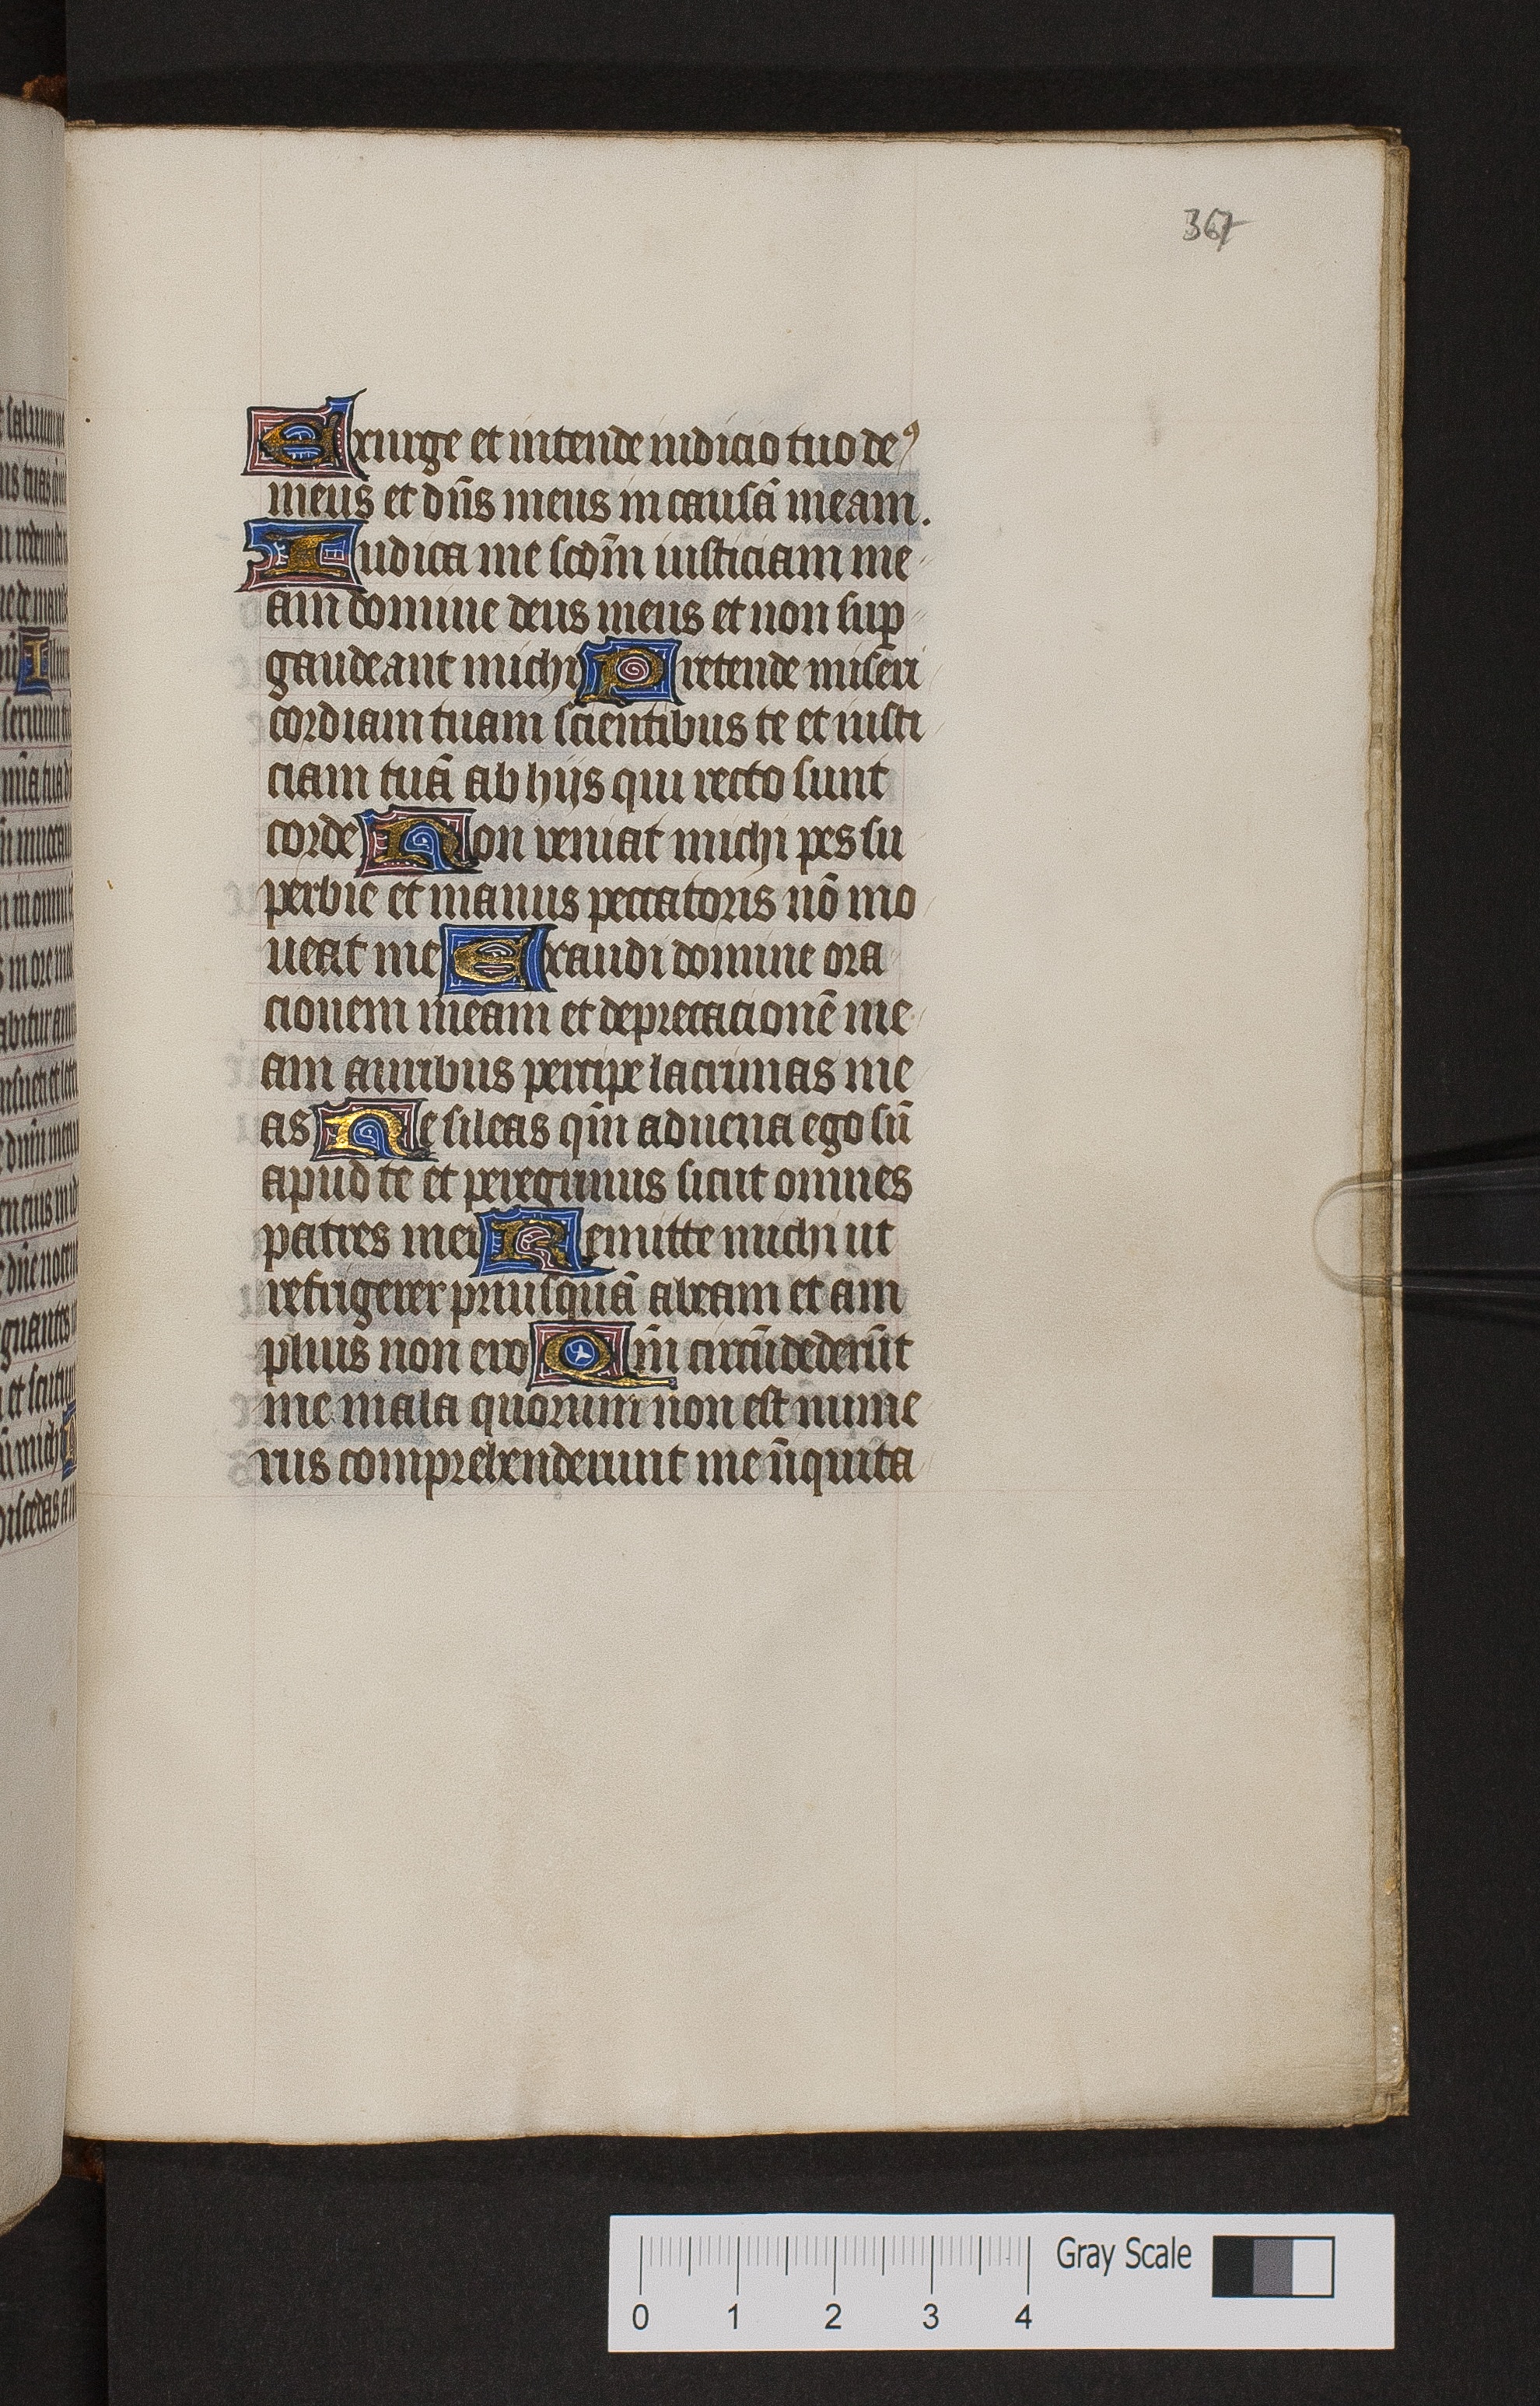 367
Exurge et intende iudicio tuo deꝰ
meus et dn̄s meus in causā meam.
Iudica me scdm̄ iusticiam me
am domine deus meus et non suꝑ
gaudeant michi Pretende miseri
cordiam tuam scientibus te et iusti
ciam tuā ab hijs qui recto sunt
corde Non veniat michi pes su
perbie et manus peccatoris nō mo
ueat me Exaudi domine ora
cionem meam et deprecacionē me
am auribus percipe lacrimas me
as Ne sileas qm̄ aduena ego sū
apud te et peregrinus sicut omnes
patres mei Remitte michi ut
refrigerer priusquā abeam et am
plius non ero Qm̄ circūdederūt
me mala quorum non est nume
rus comprehenderunt me īiquita
Gray Scale
0 1 2 3 4